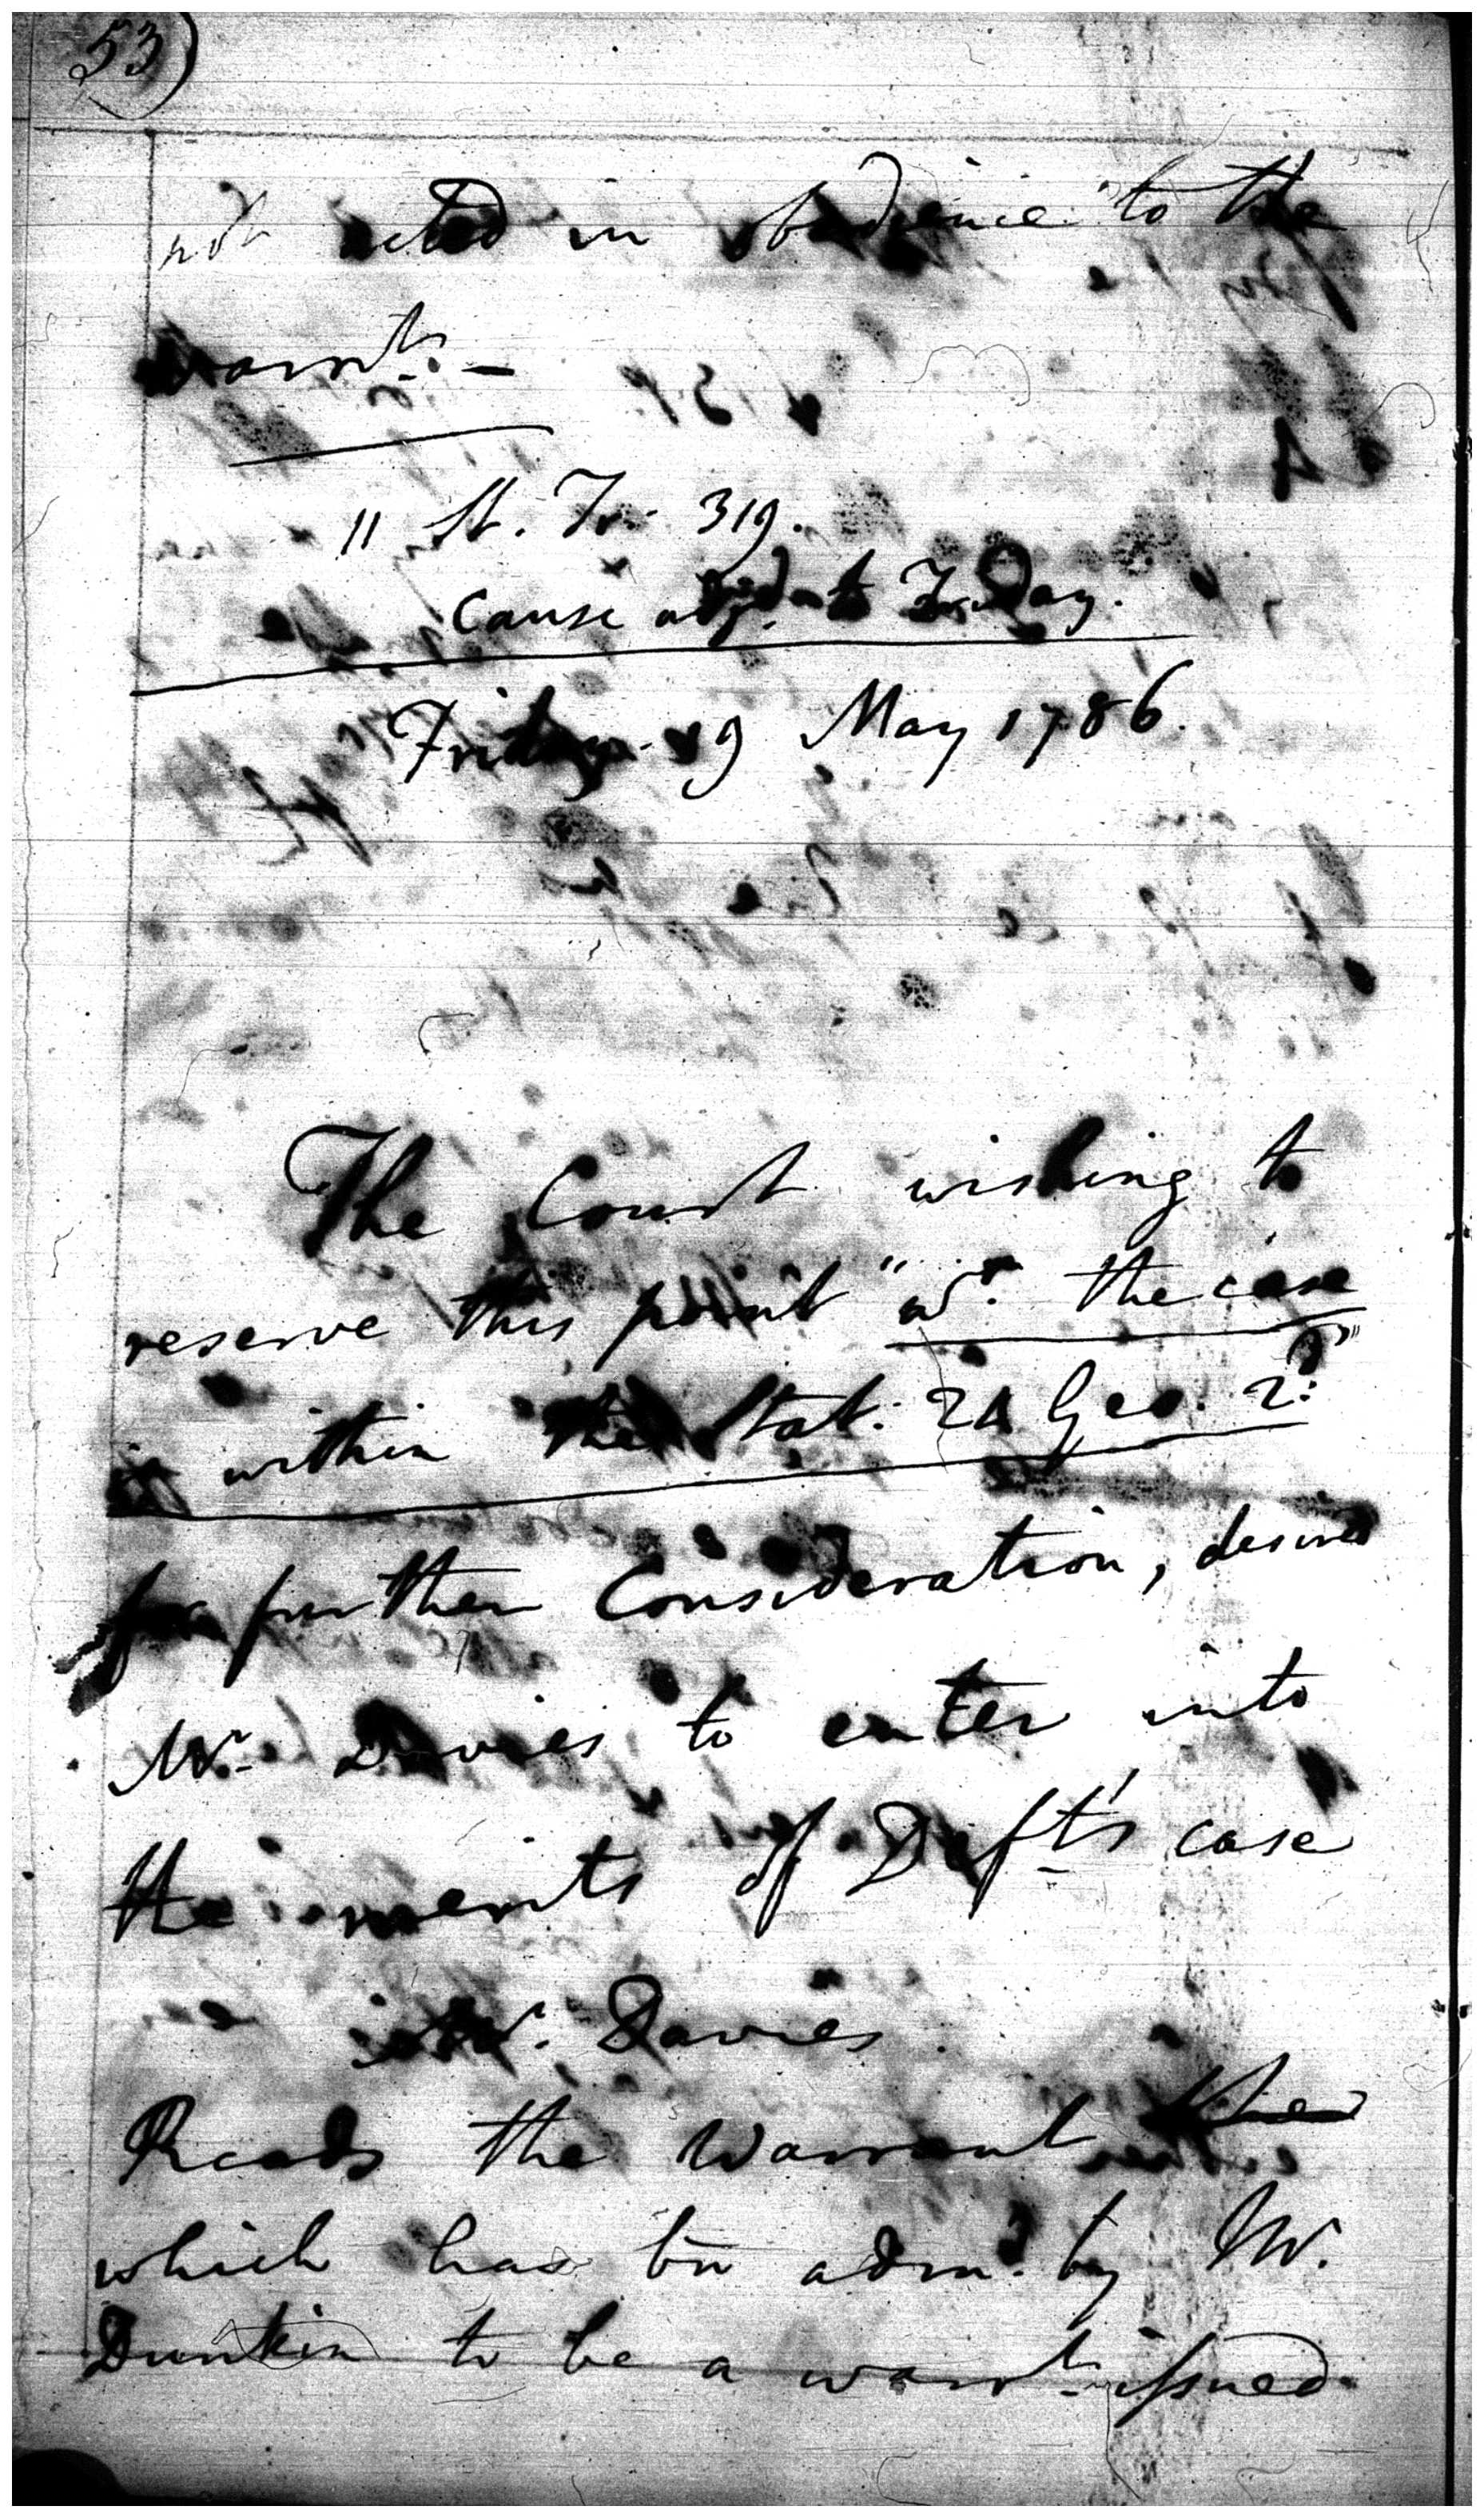 53)
not acted in obedience to the
warrt. —
11 St. Tr. 319.
Cause adjd. to Friday.
Friday. 19 May 1786.
The Court wishing to
reserve this point "wr. the case
is within the Stat: 24 Geo. 2d."
for further Consideration, desired
Mr. Davies to enter into
the merits of Deft's case
Mr. Davies
Reads the Warrant
which has bn admd. by Mr.
Dunkin to be a warrt. issued